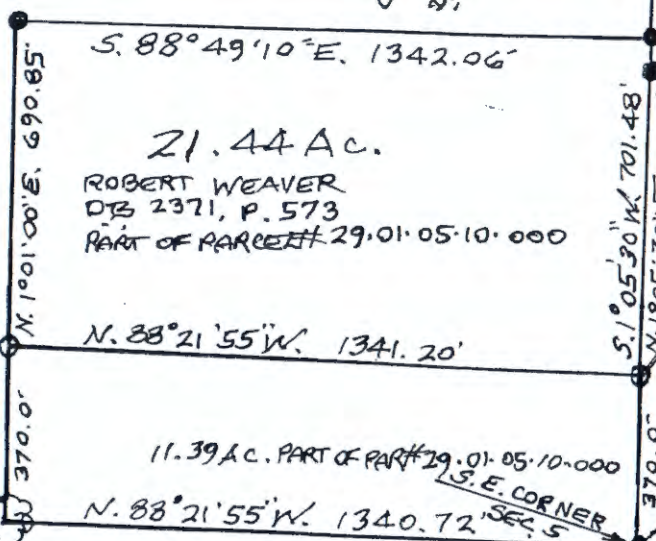 S. 88°49'10"E. 1342.06'
N. 1°01'00"E. 690.85'
21.44 Ac.
ROBERT WEAVER
DB 2371, P. 573
PART OF PARCEL# 29.01.05.10.000
S. 1°05'30"W. 701.48'
N. 88°21'55"W. 1341.20'
370.0'
11.39 Ac. PART OF PAR# 29.01.05.10.000
S.E. CORNER
SEC. 5
370.0'
N. 88°21'55"W. 1340.72'